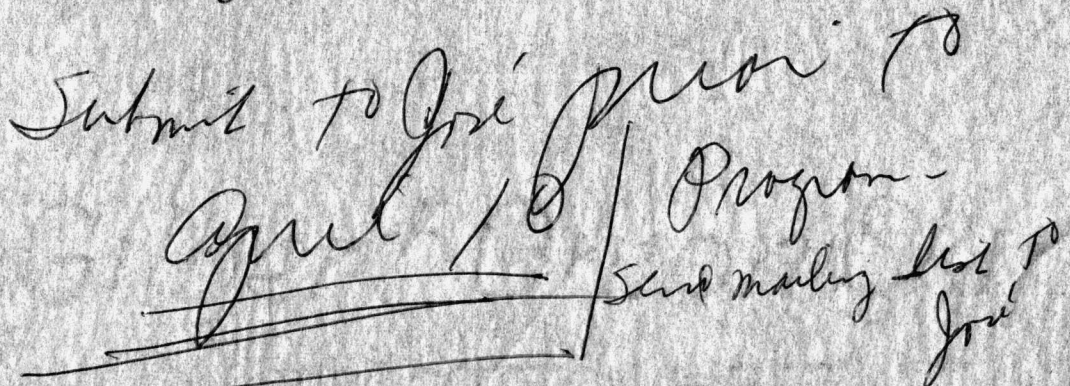 Submit to José prior to
April 10
Program -
Send mailing list to
José